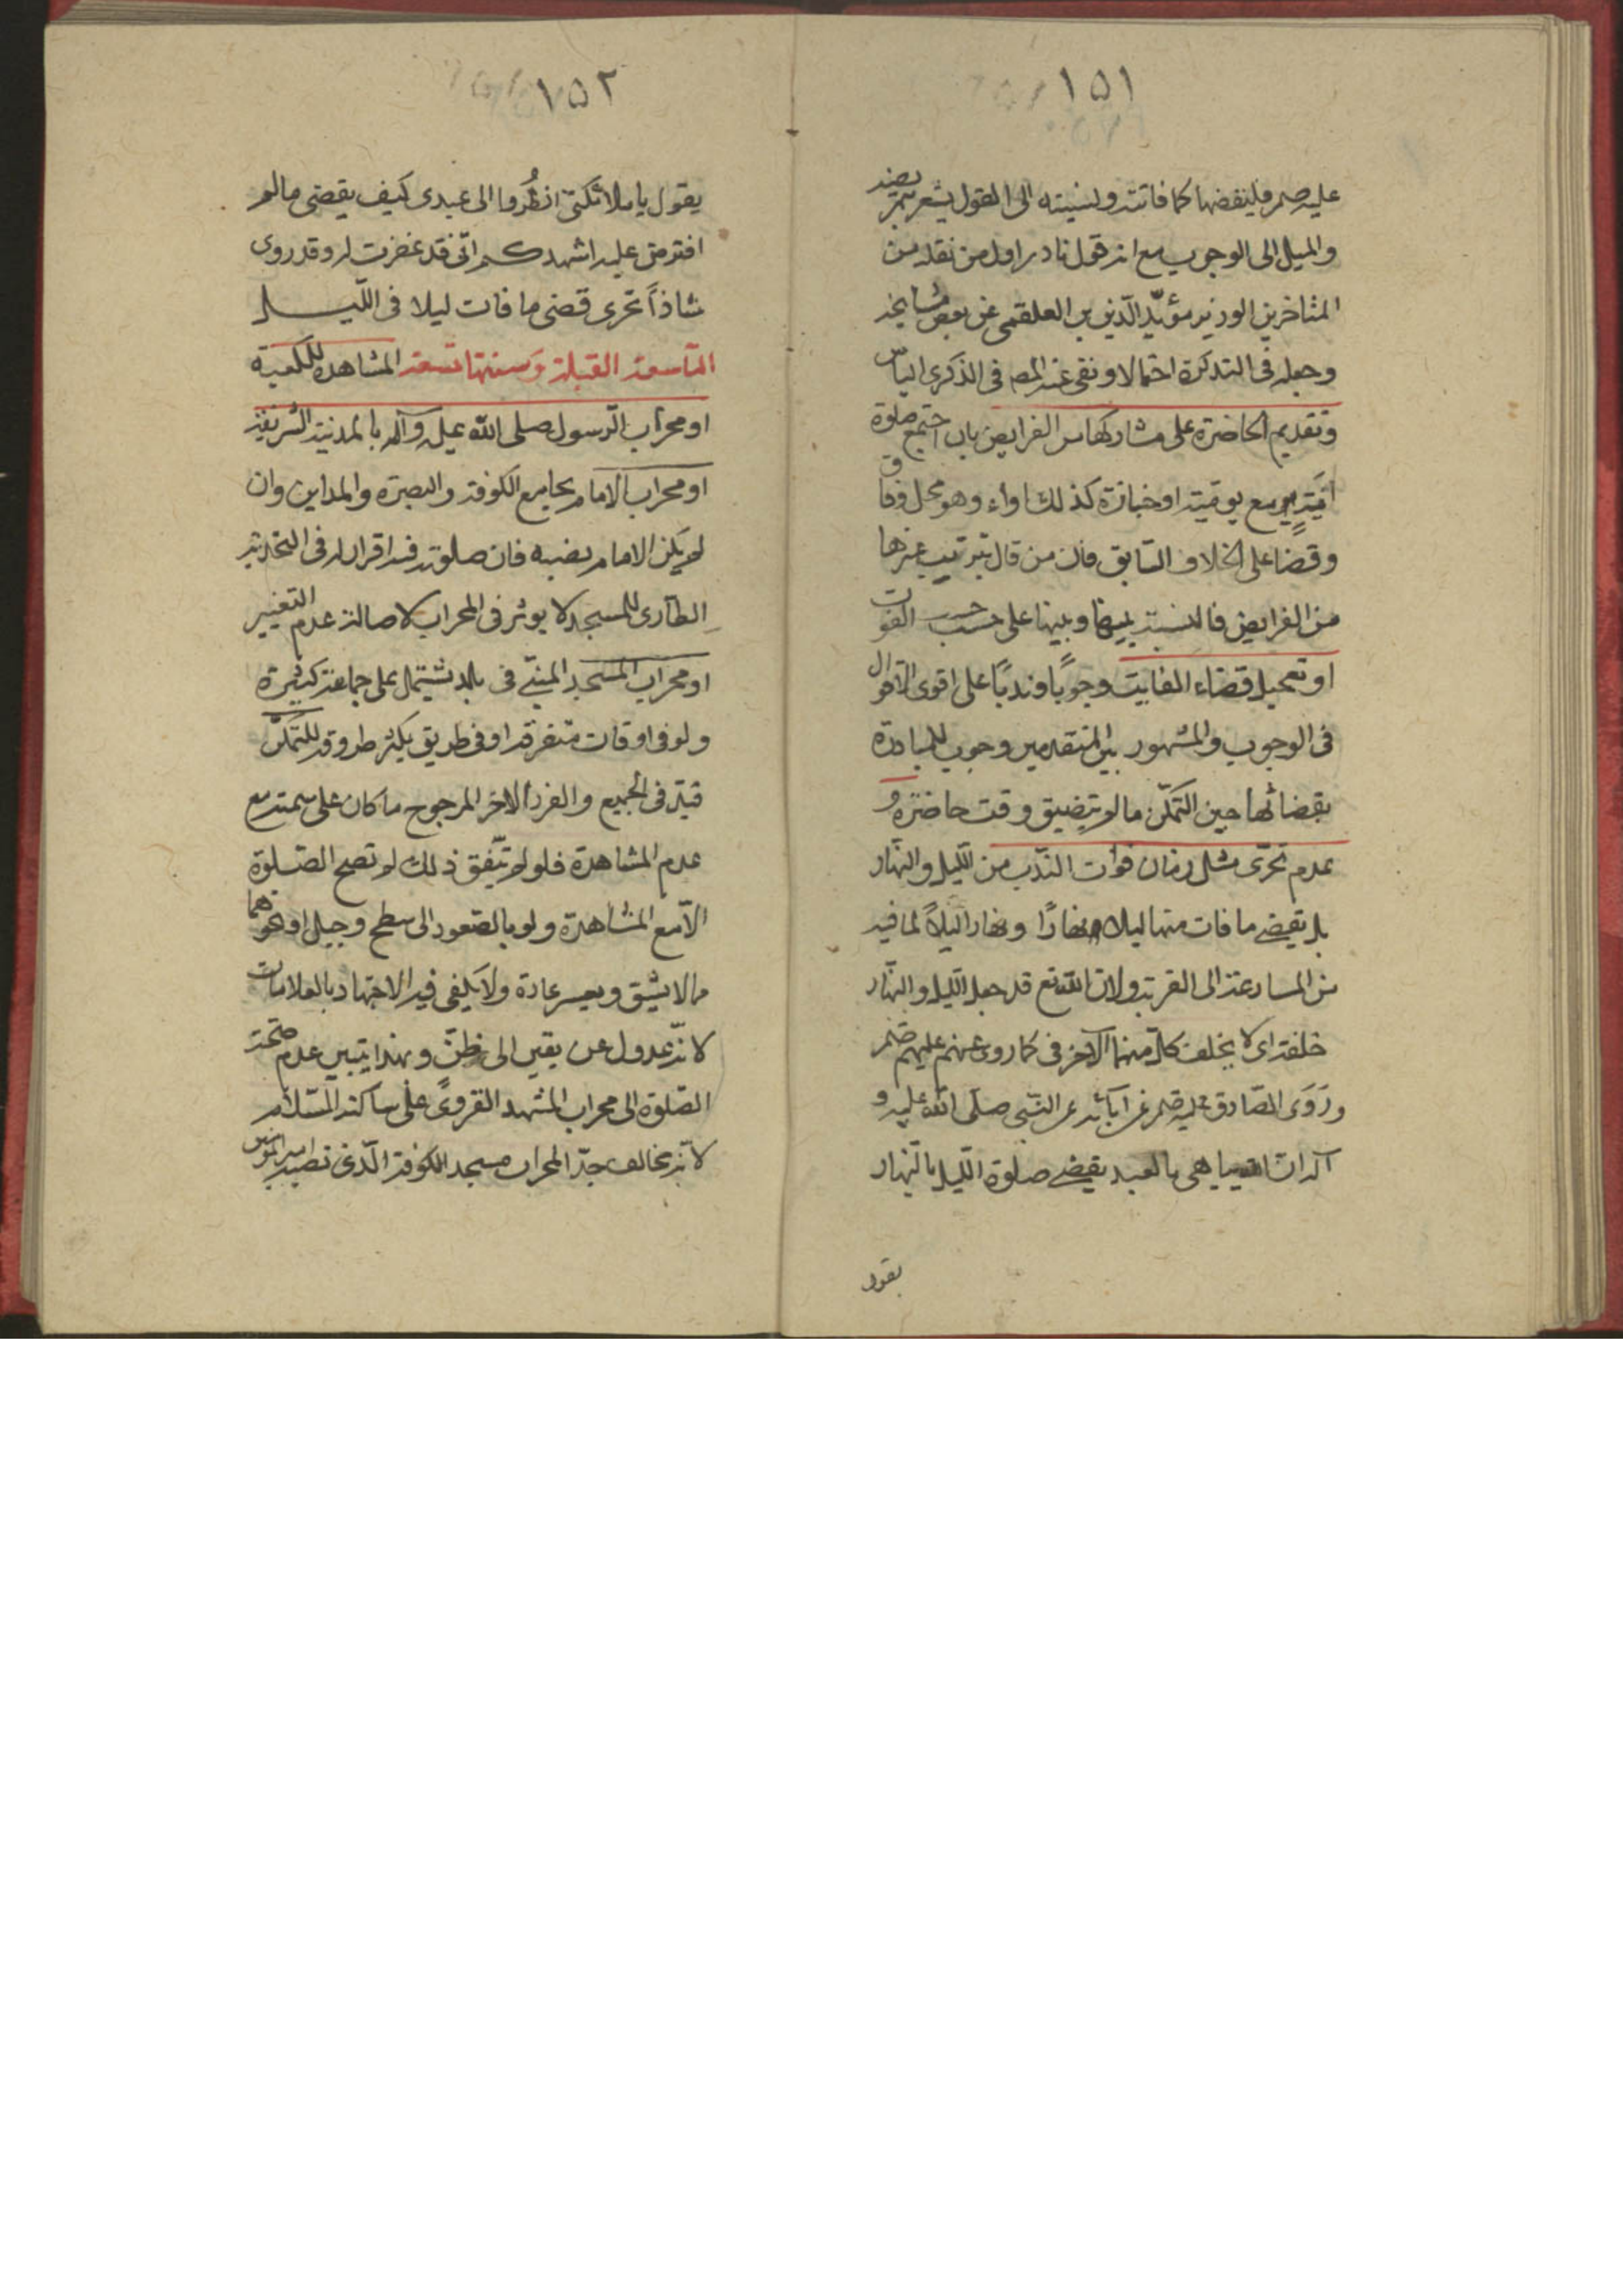 ١٥١
عليه صلم فليقضها كما فاتته ونسبته الى القول يشعر بتمريضه
والميل الى الوجوب مع انه قول نادر اول من نقله من
المتاخرين الوزير مؤيّد الدّين بن العلقمي عن بعض مشايخه
وجعله فى التذكرة احتمالا ونفى عنه المص فى الذكرى الباس
وتقديم الحاضرة على مشاركها من الفرايض بان اجتمع صلوة
مع يوميّة او جنازة كذلك اداء وهو محل وفاق
وقضا على الخلاف السّابق فان من قال بترتيب غيرها
من الفرايض فالنسبة بينها وبينها على حسب الفوات
او تعجيل قضاء الفايتة وجوبًا وندبًا على اقوى الاقوال
فى الوجوب والمشهور بين المتقدمين وجوب المبادرة
بقضائها حين التمكّن ما لم يتضيق وقت حاضرة و
عدم تحرّى مثل زمان فوات النّدب من اللّيل والنّهار
بل يقضى ما فات منها ليلا نهارًا ونهارا ليلاً لما فيه
من المسارعة الى القربة ولان الله تع قد جعل اللّيل والنّهار
خلفة اى يخلف كلّ منهما الآخر فى كما روى عنهم عليهم صلم
ورَوَى الصّادق عليه صلم عن آبائه عن النّبى صلّى الله عليه و
آله ان الله يباهى بالعبد يقضى صلوة اللّيل بالنّهار
يقول
١٥٢
يقول يا ملائكتى انظُروا الى عبدى كيف يقضى ما لم
افترض عليه اشهدكم انّى قد غفرت له وقد روى
شاذاً تحرى قضى ما فات ليلا فى اللّيل
التاسعة القبلة وَسننها تسعة المشاهدة للكعبة
او محراب الرّسول صلى الله عليه وآله بالمدنية الشريفة
او محراب الامام بجامع الكوفة والبصرة والمداين وان
لم يكن الامام نصبه فان صلوته فيه اقرار له فى التخريب
الطارى للمسجد لا يوثر فى المحراب لاصالة عدم التغيير
او محراب المسجد المبنىّ فى بلد تشتمل على جماعة كثيرة
ولو فى اوقات متفرقة او فى طريق يكثر طروقه للمتمكّن
قيد فى الجميع والفرد الاخر المرجوح ما كان على سمته مع
عدم المشاهدة فلو لم يتّفق ذلك لم تصح الصّلوة
الاّ مع المشاهدة ولو بالصّعود الى سطح وجبل او نحوهما
مالا يشق ويعسر عادة ولا يكفى فيه الاجتهاد بالعلامات
لانّه عدول عن يقين الى ظنّ وبهذا يتبين عدم صحّة
الصّلوة الى محراب المشهد الغروىّ على ساكنه السّلام
لانّه مخالف جدّا لمحراب مسجد الكوفة الّذى نصبه امير المومنين